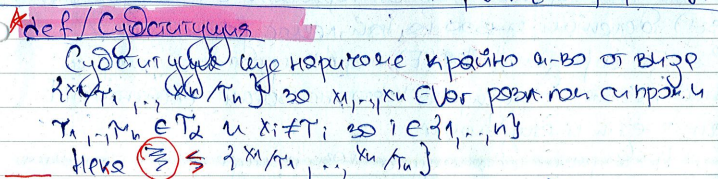 def/ Субституция
Субституция ще наричаме крайно м-во от вида
{x1/τ1, .., xn/τn} за x1,..,xn ∈ Var разл. пом си пром. и
τ1,..,τn ∈ T𝓛 и xi ≠ τi за i ∈ {1,..,n}
Нека S {x1/τ1, .., xn/τn}